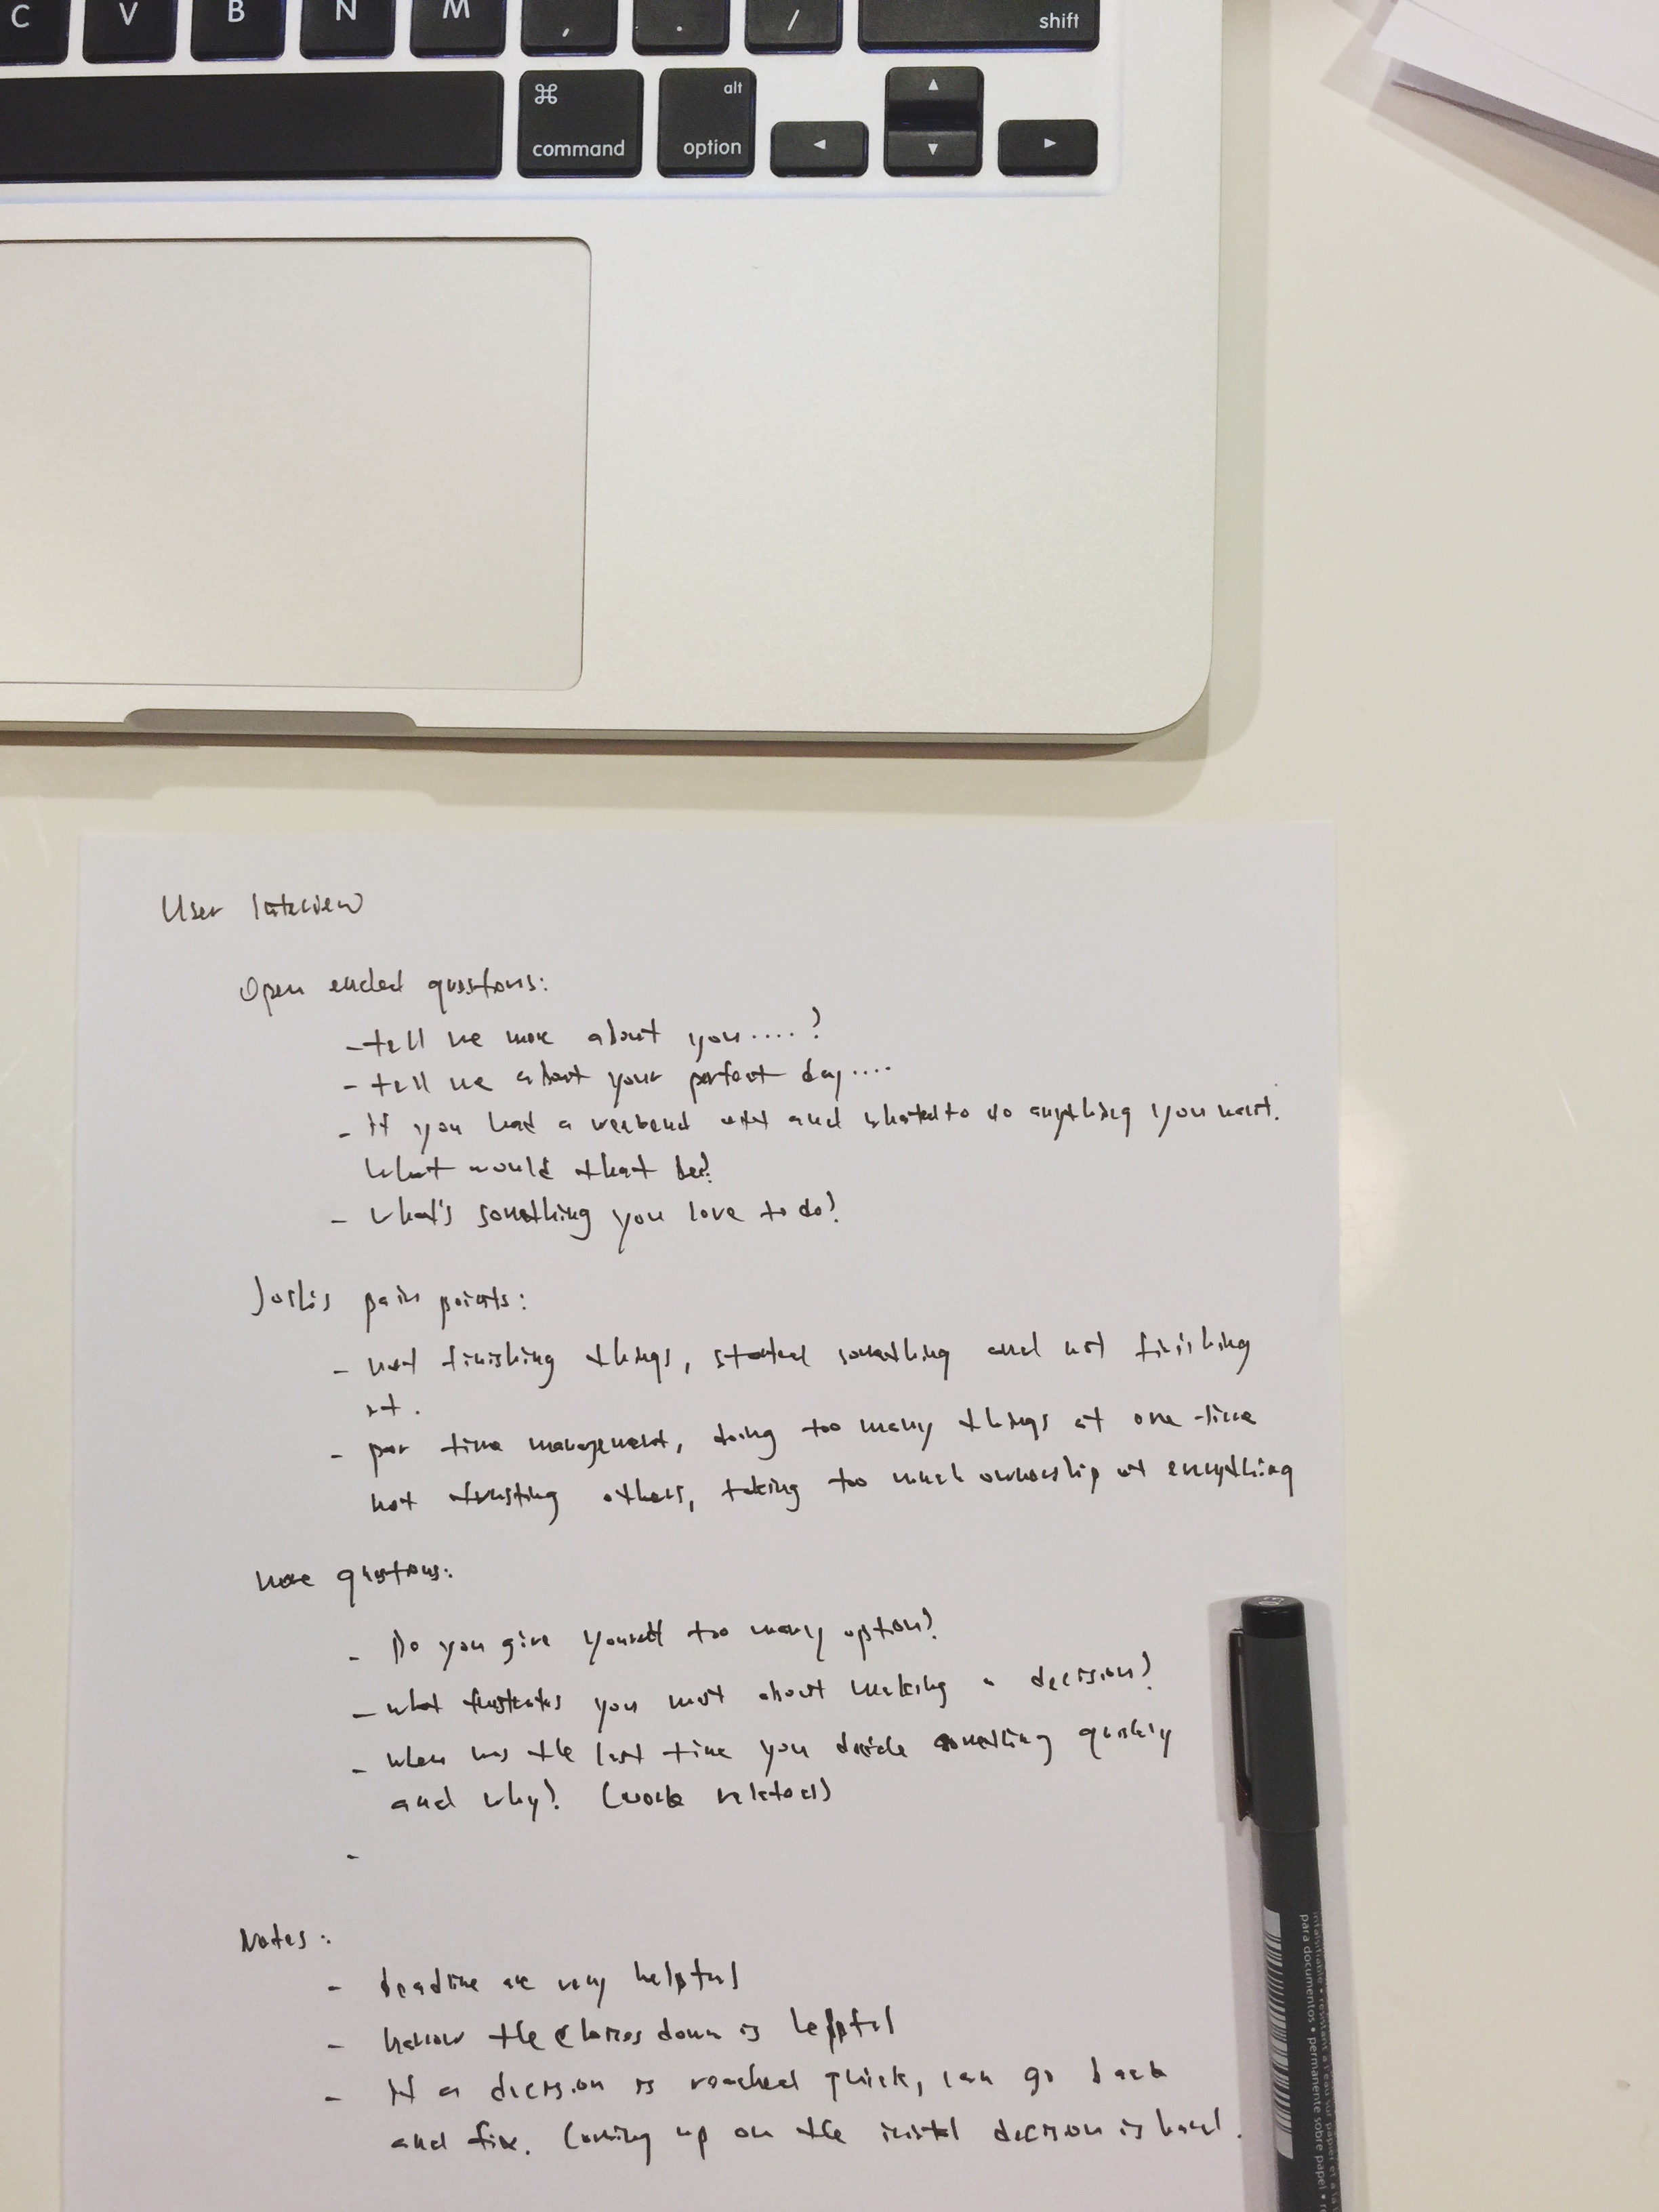 C V B N M , . / shift
⌘ alt
command option ◄ ▲ ▼ ►
User Interview
Open ended questions:
- tell me more about you....?
- tell me about your perfect day....
- If you had a weekend and to do anything you want.
What would that be?
- What's something you love to do?
pain points:
- not finishing things, started something and not finishing
it.
- poor time management, doing too many things at one time
not trusting others, taking too much ownership of everything
more questions:
- Do you give yourself too many option?
- what frustrates you most about making a decision?
- when was the last time you decide something quickly
and why? (work related)
-
Notes:
- deadline are very helpful
- narrow the choices down is helpful
- If a decision is reached quick, can go back
and fix. Coming up on the initial decision is hard.
para documentos • permanente sobre papel •